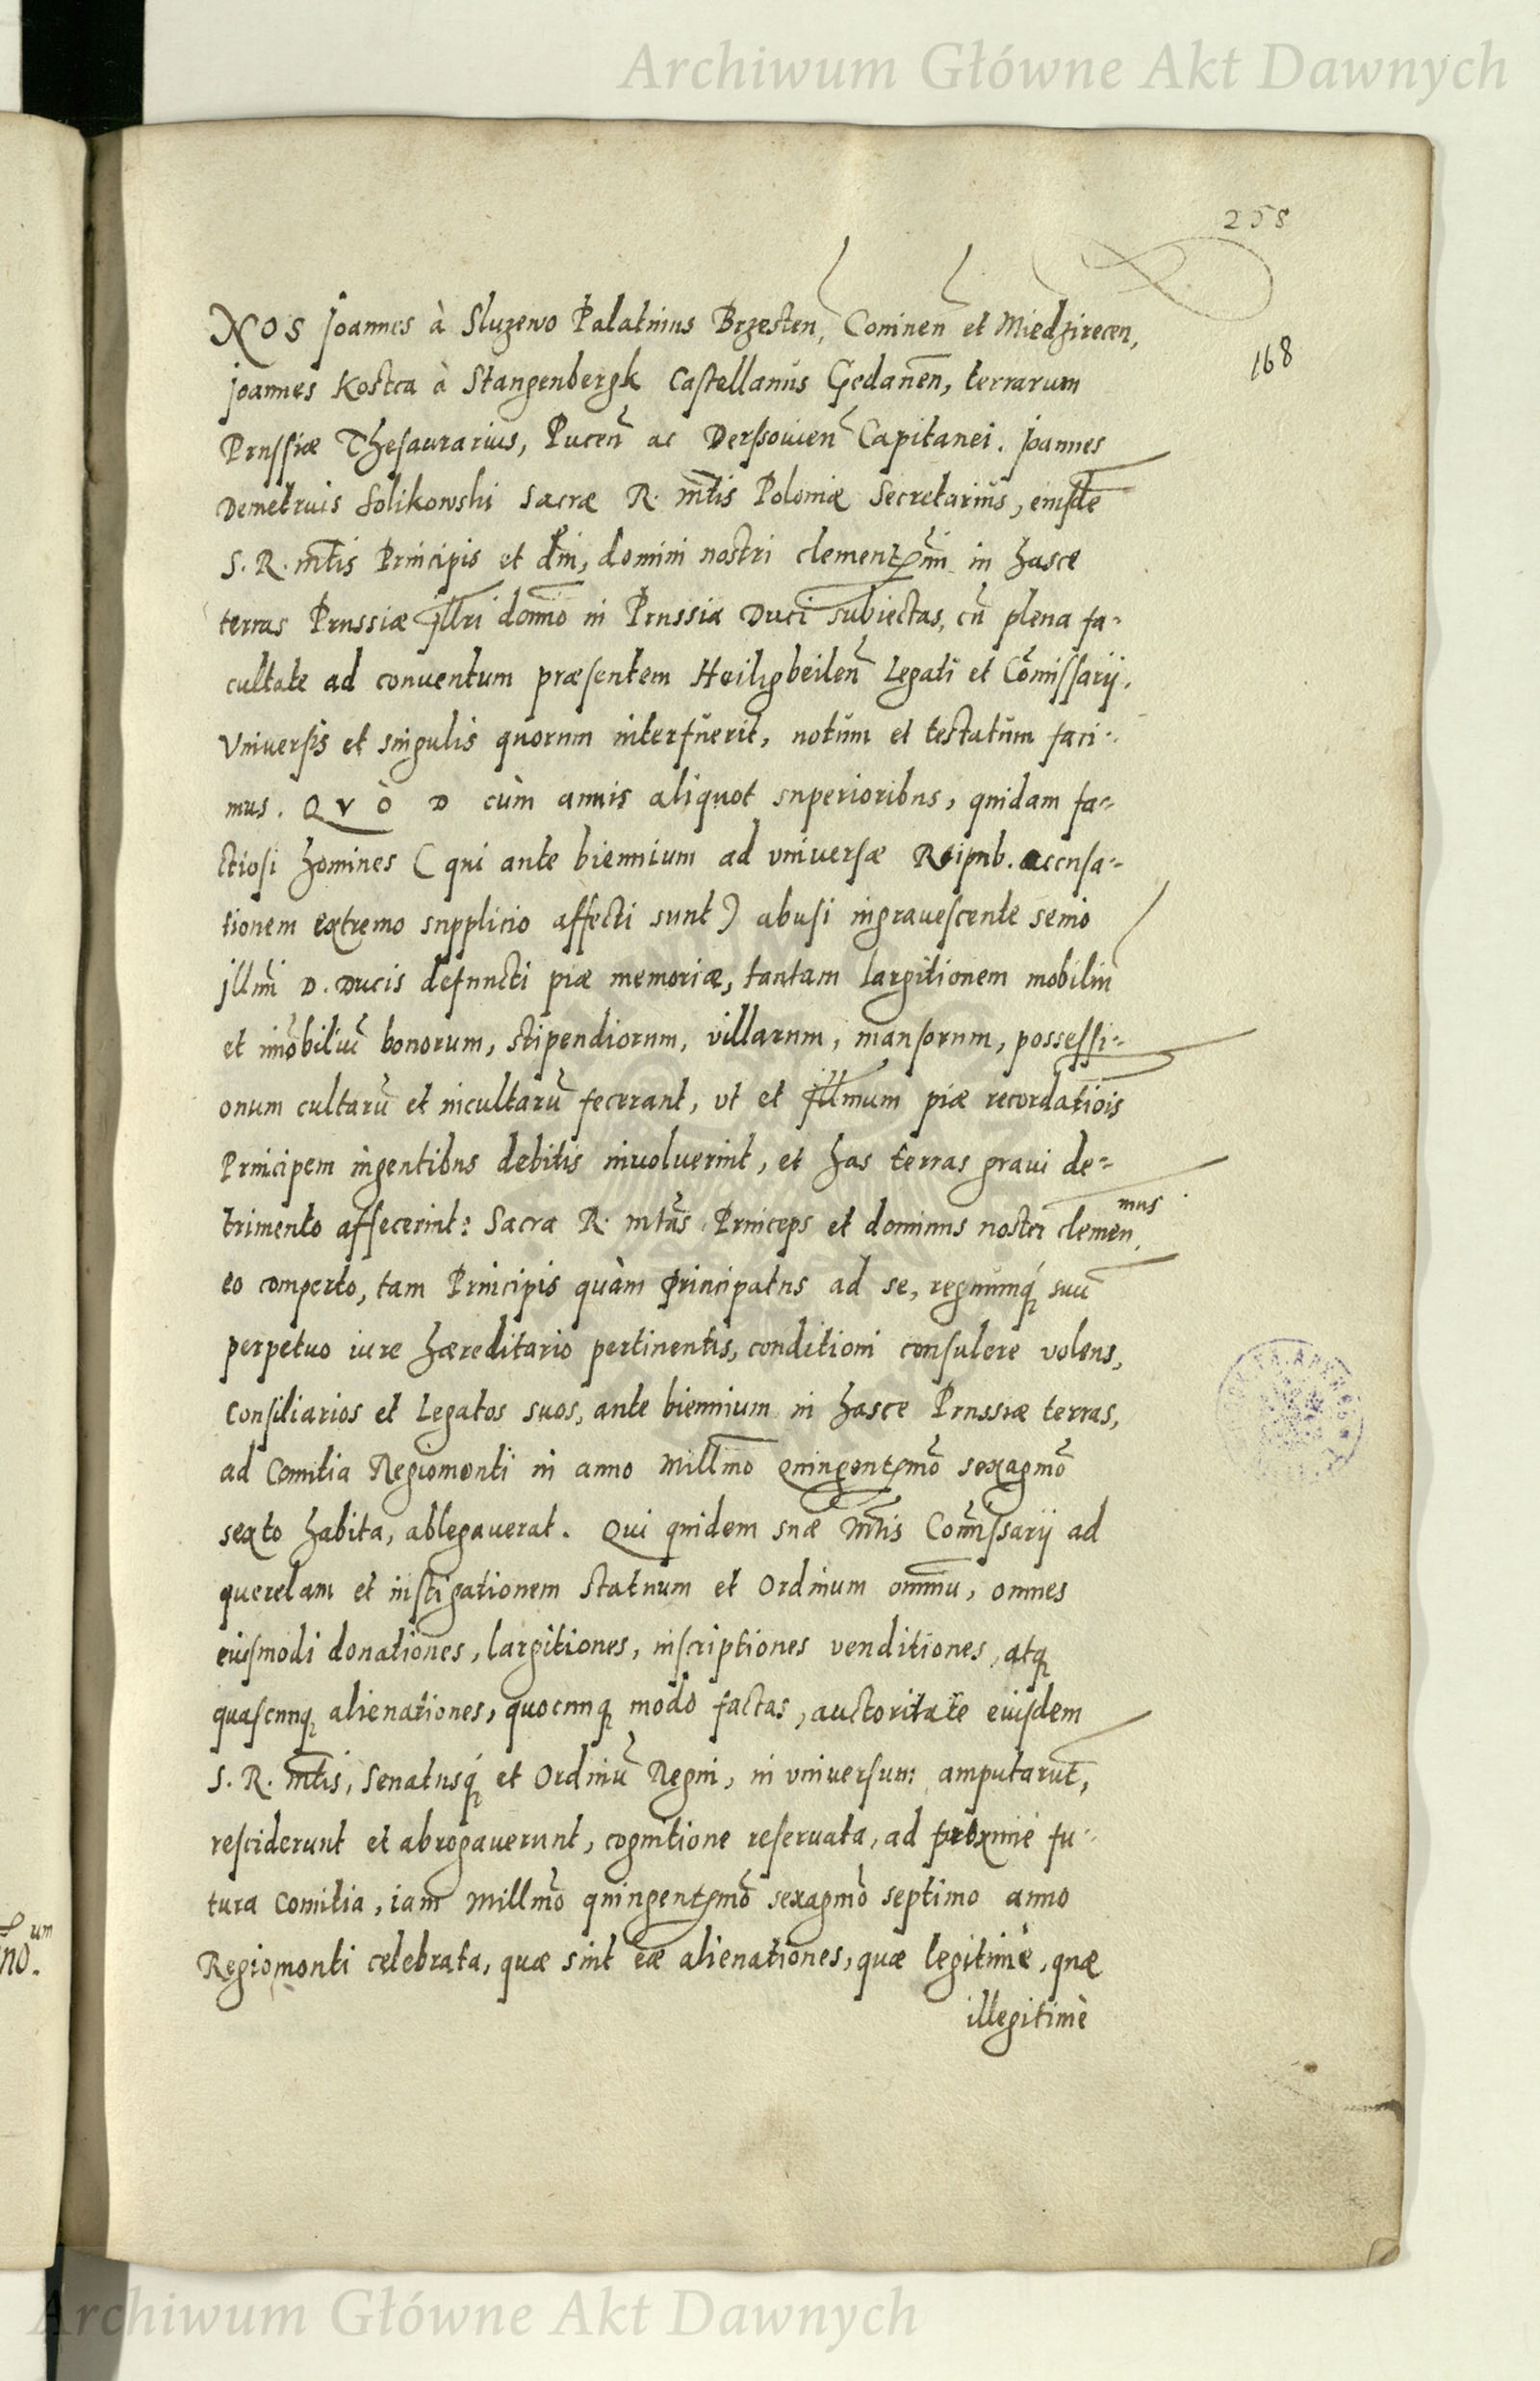 Archiwum Główne Akt Dawnych
258
168
NOS Joannes à Sluzewo Palatinus Brzesten, Coninen̄ et Miedzirecen,
Joannes Kostca à Stangenbergk Castellanus Gedanen̄, terrarum
Prussiæ Thesaurarius, Pucen̄ ac Derssouien̄ Capitanei. Joannes
Demetrius Solikowshi Sacræ R. m̄tis Poloniæ Secretarius, eiusdē
S. R. m̄tis Principis et dn̄i, domini nostri clementissimi in hasce
terras Prussiæ Jll̄ri domīo in Prussia Duci subiectas, cū plena fa-
cultate ad conuentum præsentem Heiligbeilen̄ Legati et Com̄issarij.
Vniuersis et singulis quorum interfuerit, notum et testatum faci-
mus. QVÒD cùm annis aliquot superioribus, quidam fa-
ctiosi homines (qui ante biennium ad vniuersæ Reipub. accusa-
tionem extremo supplicio affecti sunt) abusi ingrauescente senio
Jllm̄i D. Ducis defuncti piæ memoriæ, tantam largitionem mobiliū
et im̄obiliū bonorum, stipendiorum, villarum, mansorum, possessi-
onum cultarū et incultarū fecerant, vt et Jll̄mum piæ recordatiōis
Principem ingentibus debitis inuoluerint, et has terras graui de-
trimento affecerint: Sacra R. mtās Princeps et dominus noster clemen mus
eo comperto, tam Principis quàm principatus ad se, regnumq́ suū
perpetuo iure hæreditario pertinentis, conditioni consulere volens,
Consiliarios et Legatos suos, ante biennium in hasce Prussiæ terras,
ad Comitia Regiomonti in anno Millm̄o Quingentesimō sexagm̄o
sexto habita, ablegauerat. Qui quidem suæ M̄tis Com̄issarij ad
querelam et instigationem Statuum et Ordinum omniū, omnes
eiusmodi donationes, largitiones, inscriptiones venditiones, atq
quascunq alienationes, quocunq modo factas, auctoritate eiusdem
S. R. m̄tis, Senatusq́ et Ordinū Regni, in vniuersum amputarūt,
resciderunt et abrogauerunt, cognitione reseruata, ad proxime fu-
tura Comitia, iam Millm̄o quingentesimō sexagm̄o septimo anno
Regiomonti celebrata, quæ sint eæ alienationes, quæ legitimè, quæ
illegitimè
um
no.
Archiwum Główne Akt Dawnych